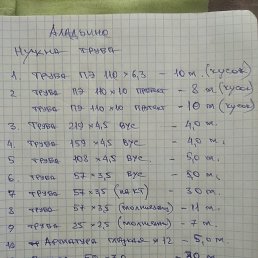 Аладьино
Нужна труба
1. Труба ПЭ 110 × 6,3 – 10 м. (кусок)
2 Труба ПЭ 110 × 10 – 8 м (кусок)
Труба ПЭ 110 × 10 – 10 м (кусок)
3. Труба 219 × 4,5 ВУС – 4,0 м.
4. Труба 159 × 4,5 ВУС – 4,0 м.
5 Труба 108 × 4,5 ВУС. – 5,0 м.
6 Труба 57 × 3,5 ВУС – м.
7 Труба 57 × 3,5 – 30 м.
8 Труба 57 × 3,5 – 11 м.
9 Труба 25 × 2,5 – 7 м.
10 Арматура гладкая × 12 – 5,0 м.